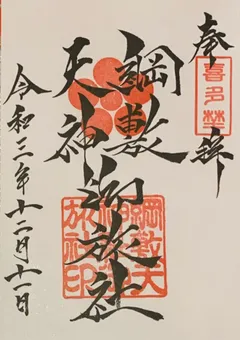 奉拝
喜多埜
綱敷
天神御旅社
令和三年十二月十一日
綱敷天
神御
旅社印